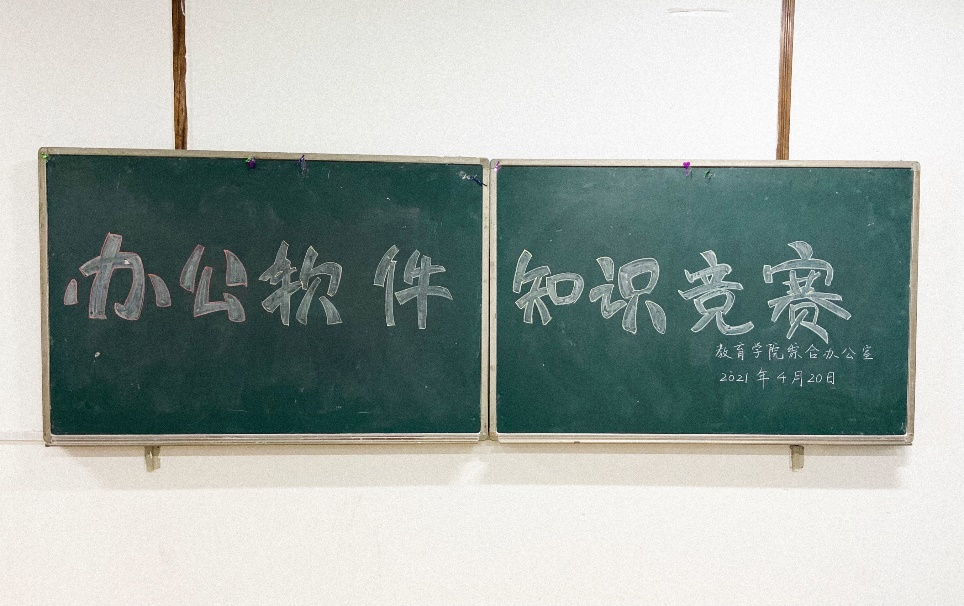 办公软件知识竞赛
教育学院综合办公室
2021年4月20日